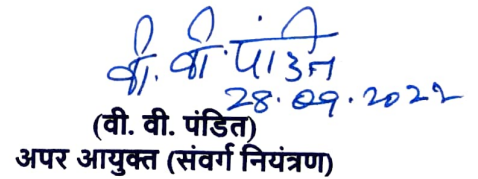 वी. वी. पंडित
28.09.2022
(वी. वी. पंडित)
अपर आयुक्त (संवर्ग नियंत्रण)